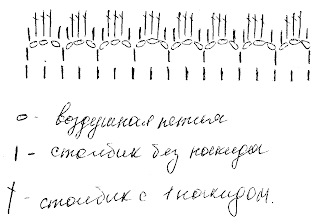 о - воздушная петля
I - столбик без накида
† - столбик с 1 накидом.